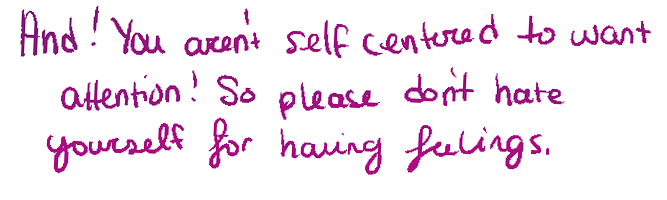 And! You aren't self centered to want
attention! So please don't hate
yourself for having feelings.